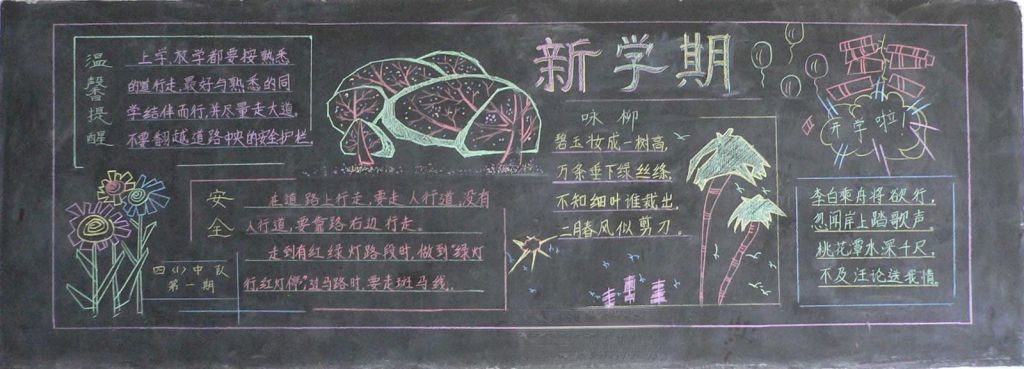 新学期
温馨提醒
上学放学都要按熟悉
的道行走,最好与熟悉的同
学结伴而行,并尽量走大道,
不要翻越道路中央的安全护栏。
安全
在道路上行走,要走人行道,没有
人行道,要靠路右边行走。
走到有红绿灯路段时,做到“绿灯
行,红灯停”过马路时,要走斑马线。
四(1)中队
第一期
咏柳
碧玉妆成一树高,
万条垂下绿丝绦,
不知细叶谁裁出,
二月春风似剪刀。
开学啦!
李白乘舟将欲行,
忽闻岸上踏歌声。
桃花潭水深千尺,
不及汪论送我情。